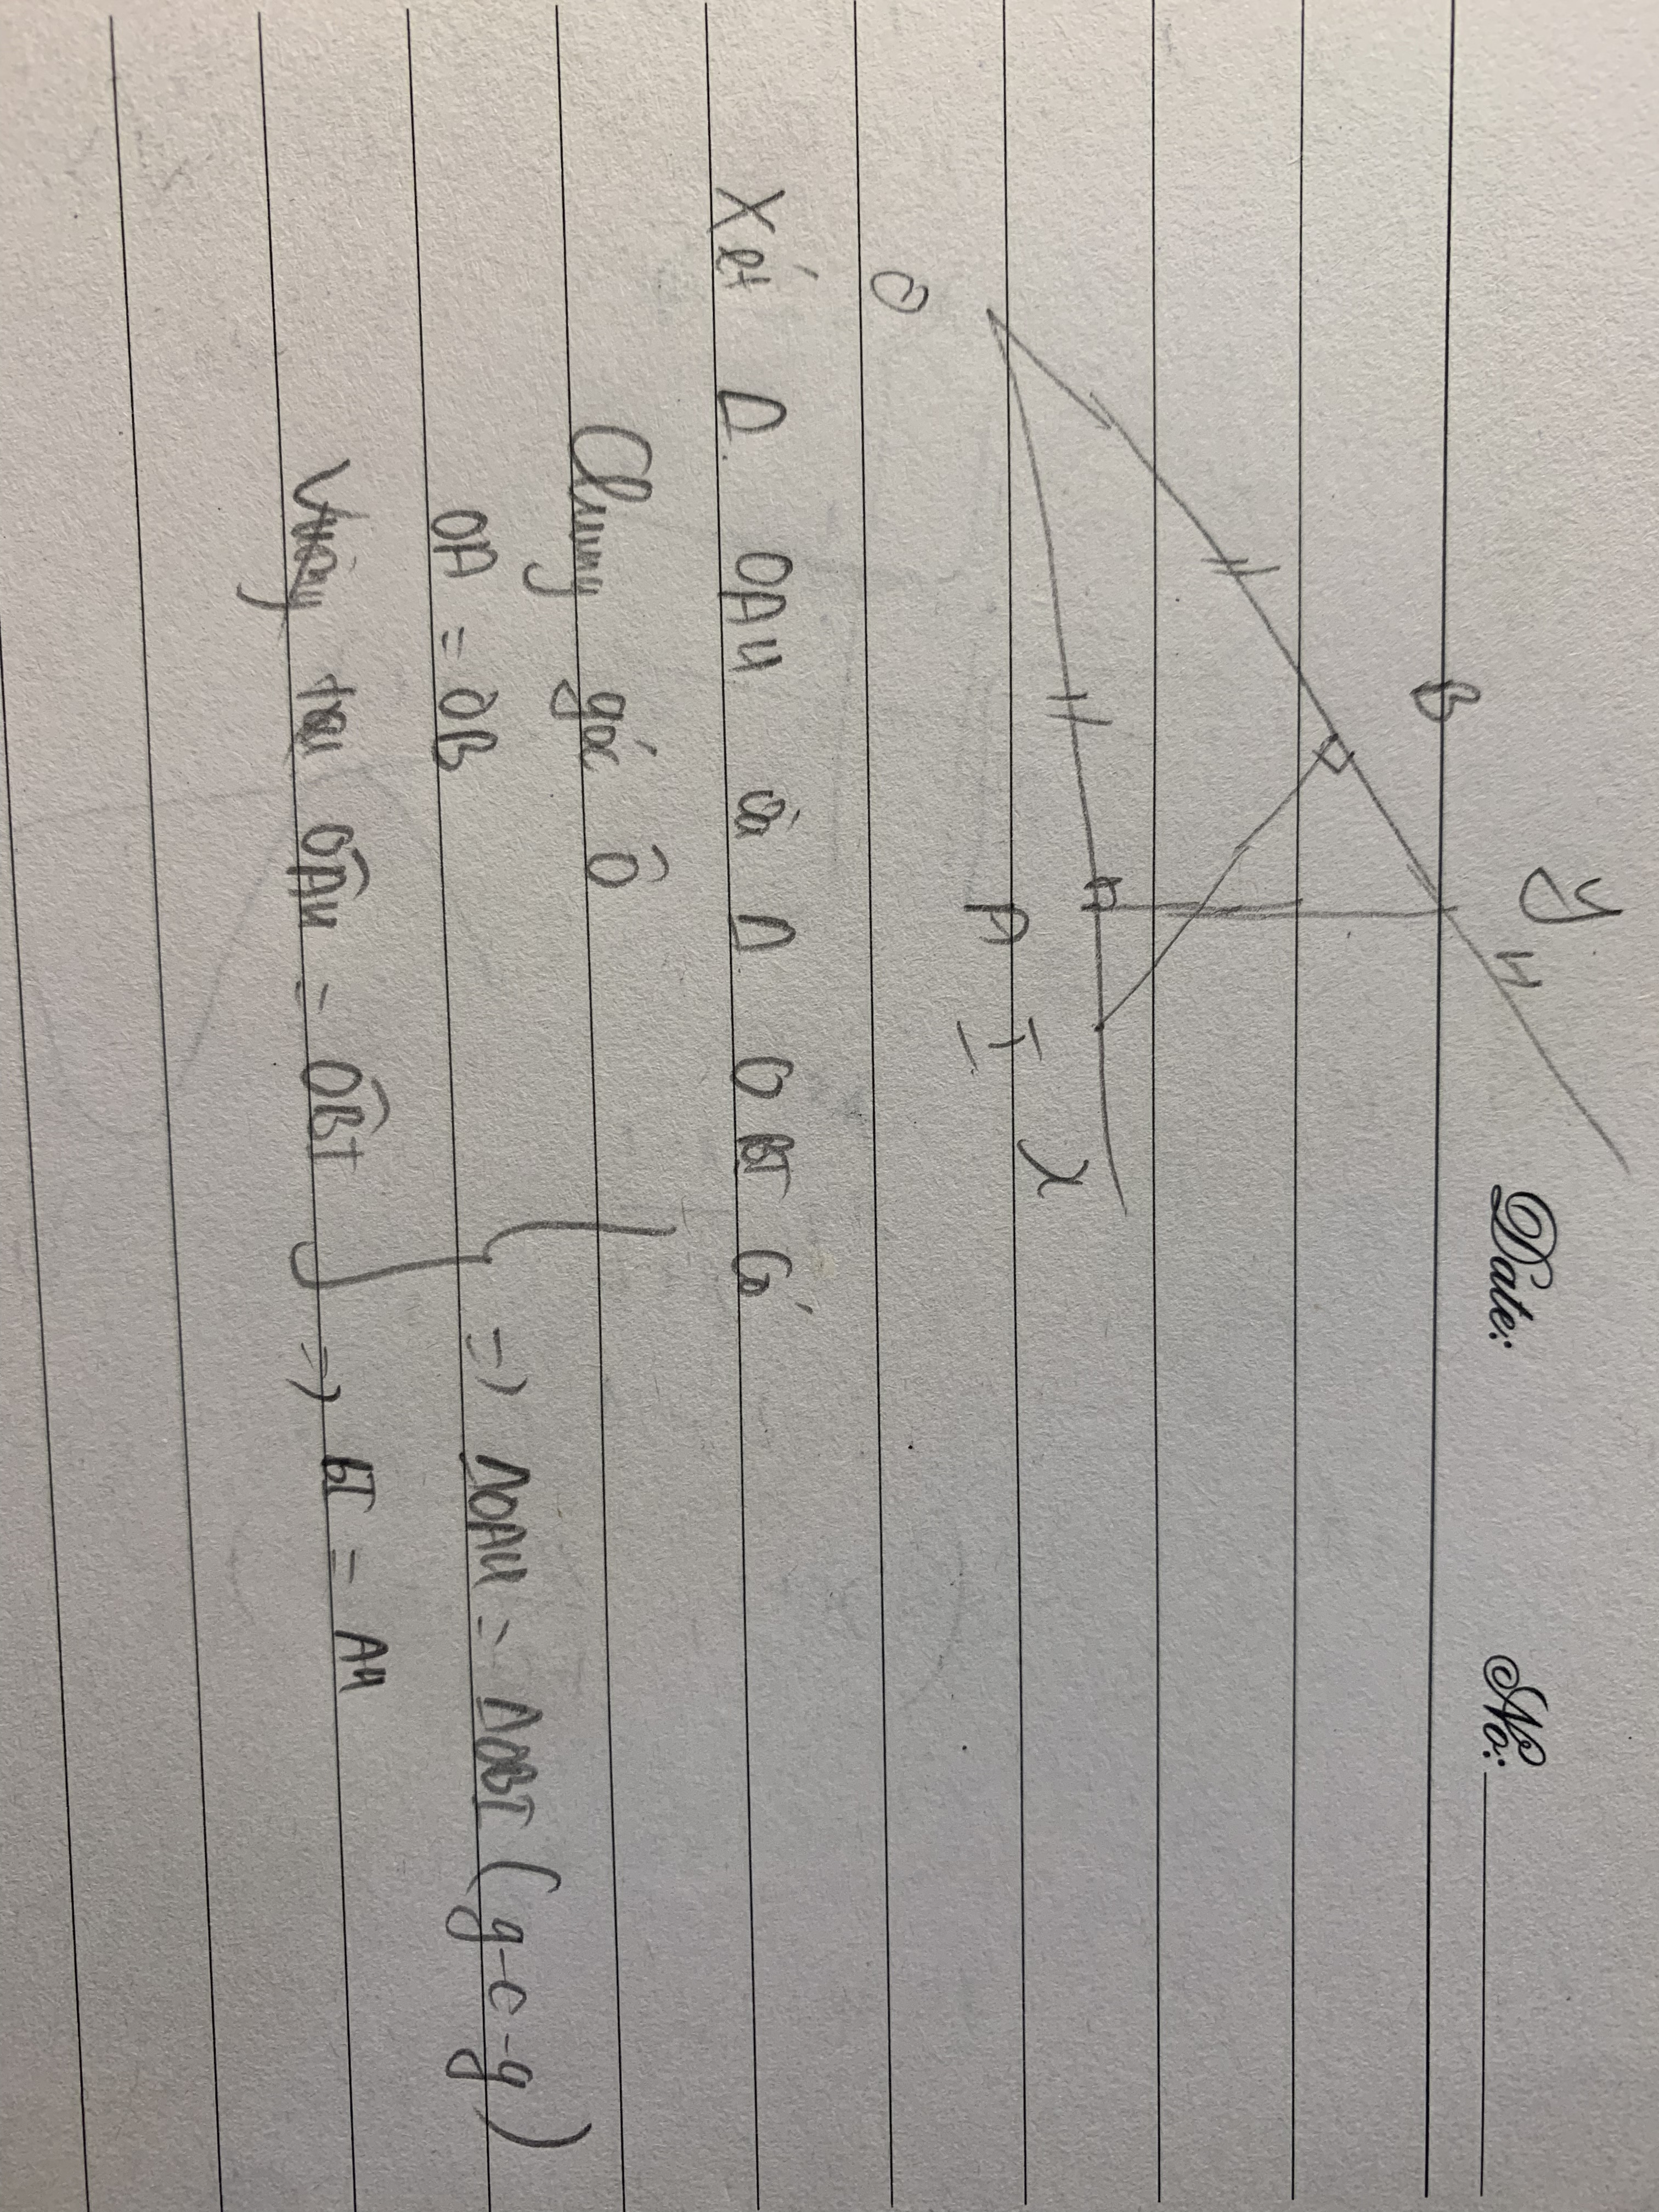 Date: No:
y H
B
O
A I x
Xét Δ OAH và Δ OBI Có
Chung góc Ô
OA = OB
⇒ ΔOAH = ΔOBI (g-c-g)
Vuông tại OÂH = OB̂I ⇒ BI = AH